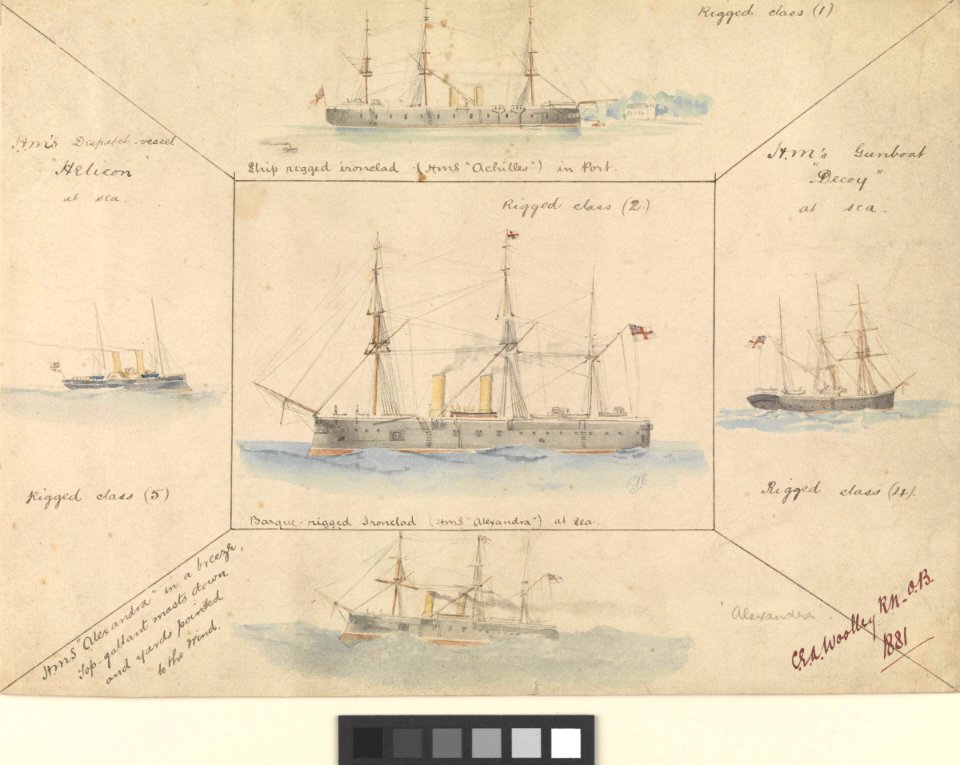 Rigged class (1)
Ship rigged ironclad (HMS "Achilles") in Port.
H.M.'s Despatch-vessel
"Helicon"
at sea.
H.M's Gunboat
"Decoy"
at sea.
Rigged class (2)
Rigged class (5)
Rigged class (4).
Barque-rigged Ironclad (HMS "Alexandra") at Sea.
HMS "Alexandra" in a breeze,
Top-gallant masts down
and yards pointed
to the wind.
"Alexandra"
C.E.A. Woolley RN_O.B.
1881